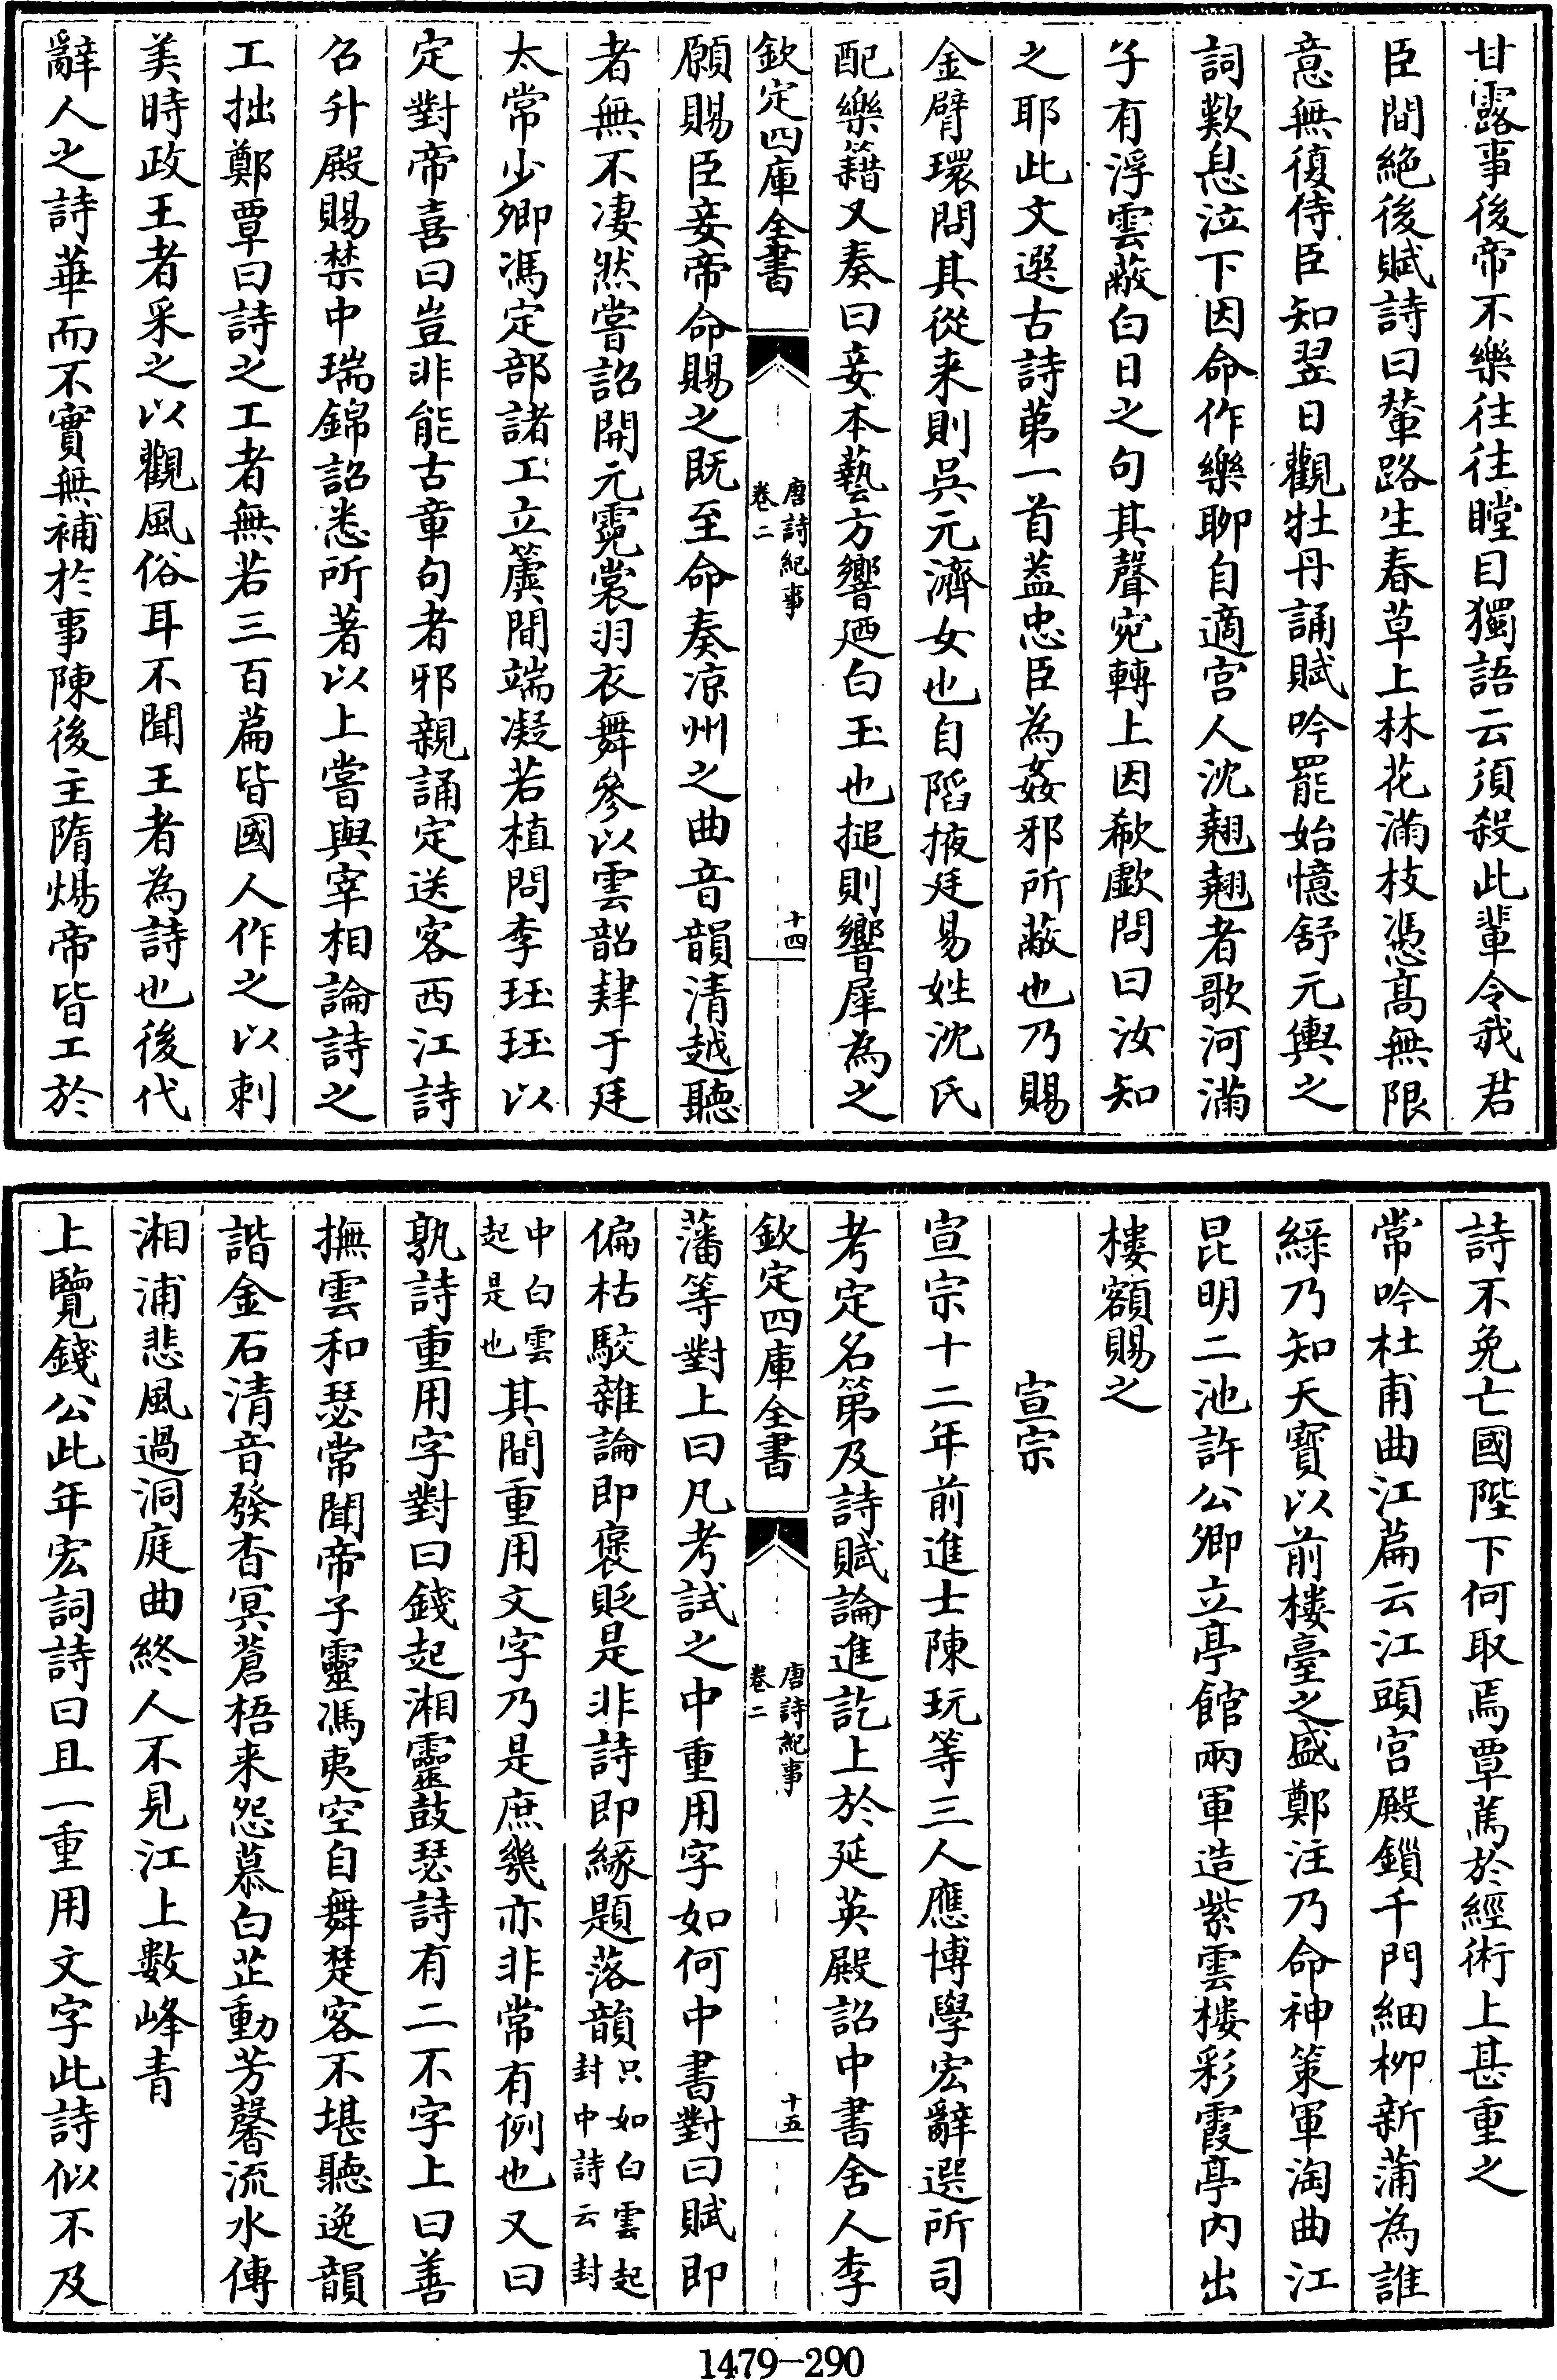 甘露事後帝不樂往往瞠目獨語云須殺此輩令我君
臣間絶後賦詩曰輦路生春草上林花滿枝憑髙無限
意無復侍臣知翌日觀牡丹誦賦吟罷始憶舒元輿之
詞歎息泣下因命作樂聊自適宫人沈翹翹者歌河滿
子有浮雲蔽白日之句其聲宛轉上因欷歔問曰汝知
之耶此文選古詩第一首葢忠臣為姦邪所蔽也乃賜
金臂環問其從来則吳元濟女也自䧟掖廷易姓沈氏
配樂籍又奏曰妾本藝方響廼白玉也搥則響犀為之
欽定四庫全書
唐詩紀事
卷二
十四
願賜臣妾帝命賜之既至命奏凉州之曲音韻清越聽
者無不凄然嘗詔開元霓裳羽衣舞參以雲韶肄于廷
太常少卿馮定部諸工立簴間端凝若植問李珏珏以
定對帝喜曰豈非能古章句者邪親誦定送客西江詩
召升殿賜禁中瑞錦詔悉所著以上嘗與宰相論詩之
工拙鄭覃曰詩之工者無若三百篇皆國人作之以刺
美時政王者采之以觀風俗耳不聞王者為詩也後代
辭人之詩華而不實無補於事陳後主隋煬帝皆工於
詩不免亡國陛下何取焉覃篤於經術上甚重之
常吟杜甫曲江篇云江頭宫殿鎻千門細栁新蒲為誰
緑乃知天寳以前樓臺之盛鄭注乃命神策軍淘曲江
昆明二池許公卿立亭館兩軍造紫雲樓彩霞亭内出
樓額賜之
宣宗
宣宗十二年前進士陳玩等三人應博學宏辭選所司
考定名第及詩賦論進訖上於延英殿詔中書舍人李
欽定四庫全書
唐詩紀事
卷二
十五
藩等對上曰凡考試之中重用字如何中書對曰賦即
偏枯駮雜論即褒貶是非詩即緣題落韻只如白雲起封中詩云封
中白雲起是也其間重用文字乃是庶幾亦非常有例也又曰
孰詩重用字對曰錢起湘靈鼓瑟詩有二不字上曰善
撫雲和瑟常聞帝子靈馮夷空自舞楚客不堪聽逸韻
諧金石清音發杳冥蒼梧来怨慕白芷動芳馨流水傳
湘浦悲風過洞庭曲終人不見江上數峰青
上覽錢公此年宏詞詩曰且一重用文字此詩似不及
1479-290